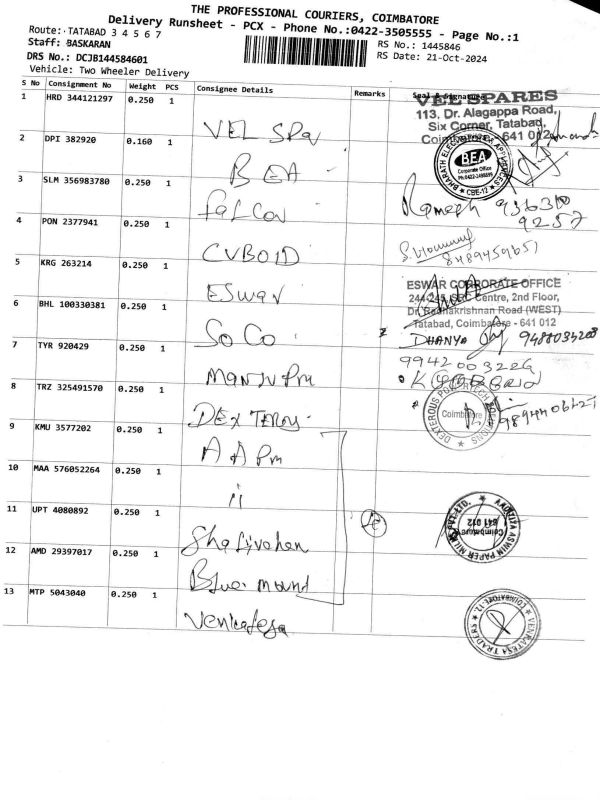 THE PROFESSIONAL COURIERS, COIMBATORE
Delivery Runsheet - PCX - Phone No.:0422-3505555 - Page No.:1
Route: TATABAD 3 4 5 6 7
Staff: BASKARAN
RS No.: 1445846
DRS No.: DCJB144584601
RS Date: 21-Oct-2024
Vehicle: Two Wheeler Delivery
S No Consignment No Weight PCS Consignee Details Remarks Seal & Signature
1 HRD 344121297 0.250 1 VEL SPa
VEL SPARES
113, Dr. Alagappa Road,
Six Corner, Tatabad,
Coimbatore - 641 012
2 DPI 382920 0.160 1 BEA
BHARATH ELECTRICAL APPLIANCES
BEA
Corporate Office
CBE-12
3 SLM 356983780 0.250 1 falcon
Ramesh
9257
4 PON 2377941 0.250 1 CVBOID
8489459651
5 KRG 263214 0.250 1 ESwar
ESWAR CORPORATE OFFICE
244-245, Centre, 2nd Floor,
Dr. Radhakrishnan Road (WEST)
Tatabad, Coimbatore - 641 012
6 BHL 100330381 0.250 1 SoCo
DHANYA
7 TYR 920429 0.250 1 Manju
8 TRZ 325491570 0.250 1 DEx
DEXTEROUS
Coimbatore
9 KMU 3577202 0.250 1 AAPM
10 MAA 576052264 0.250 1 ii
11 UPT 4080892 0.250 1 Shalivahan
ADDITIYA ASWIN PAPER MILLS PVT. LTD.
Coimbatore
641 012
12 AMD 29397017 0.250 1 Blue mound
13 MTP 5043040 0.250 1 Venkatesa
VENKATESA TRADERS
COIMBATORE-12